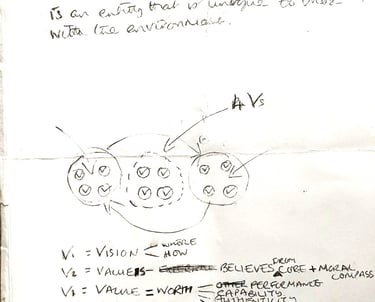 is an entity that is unique to ones
with the environment.
4 Vs
V V V V V V V V V V V V
V1 = VISION WHERE
HOW
V2 = VALUES - BELIEVES FROM CORE + MORAL
COMPASS
V3 = VALUE = WORTH OTHER PERFORMANCE
CAPABILITY
AUTHENTICITY